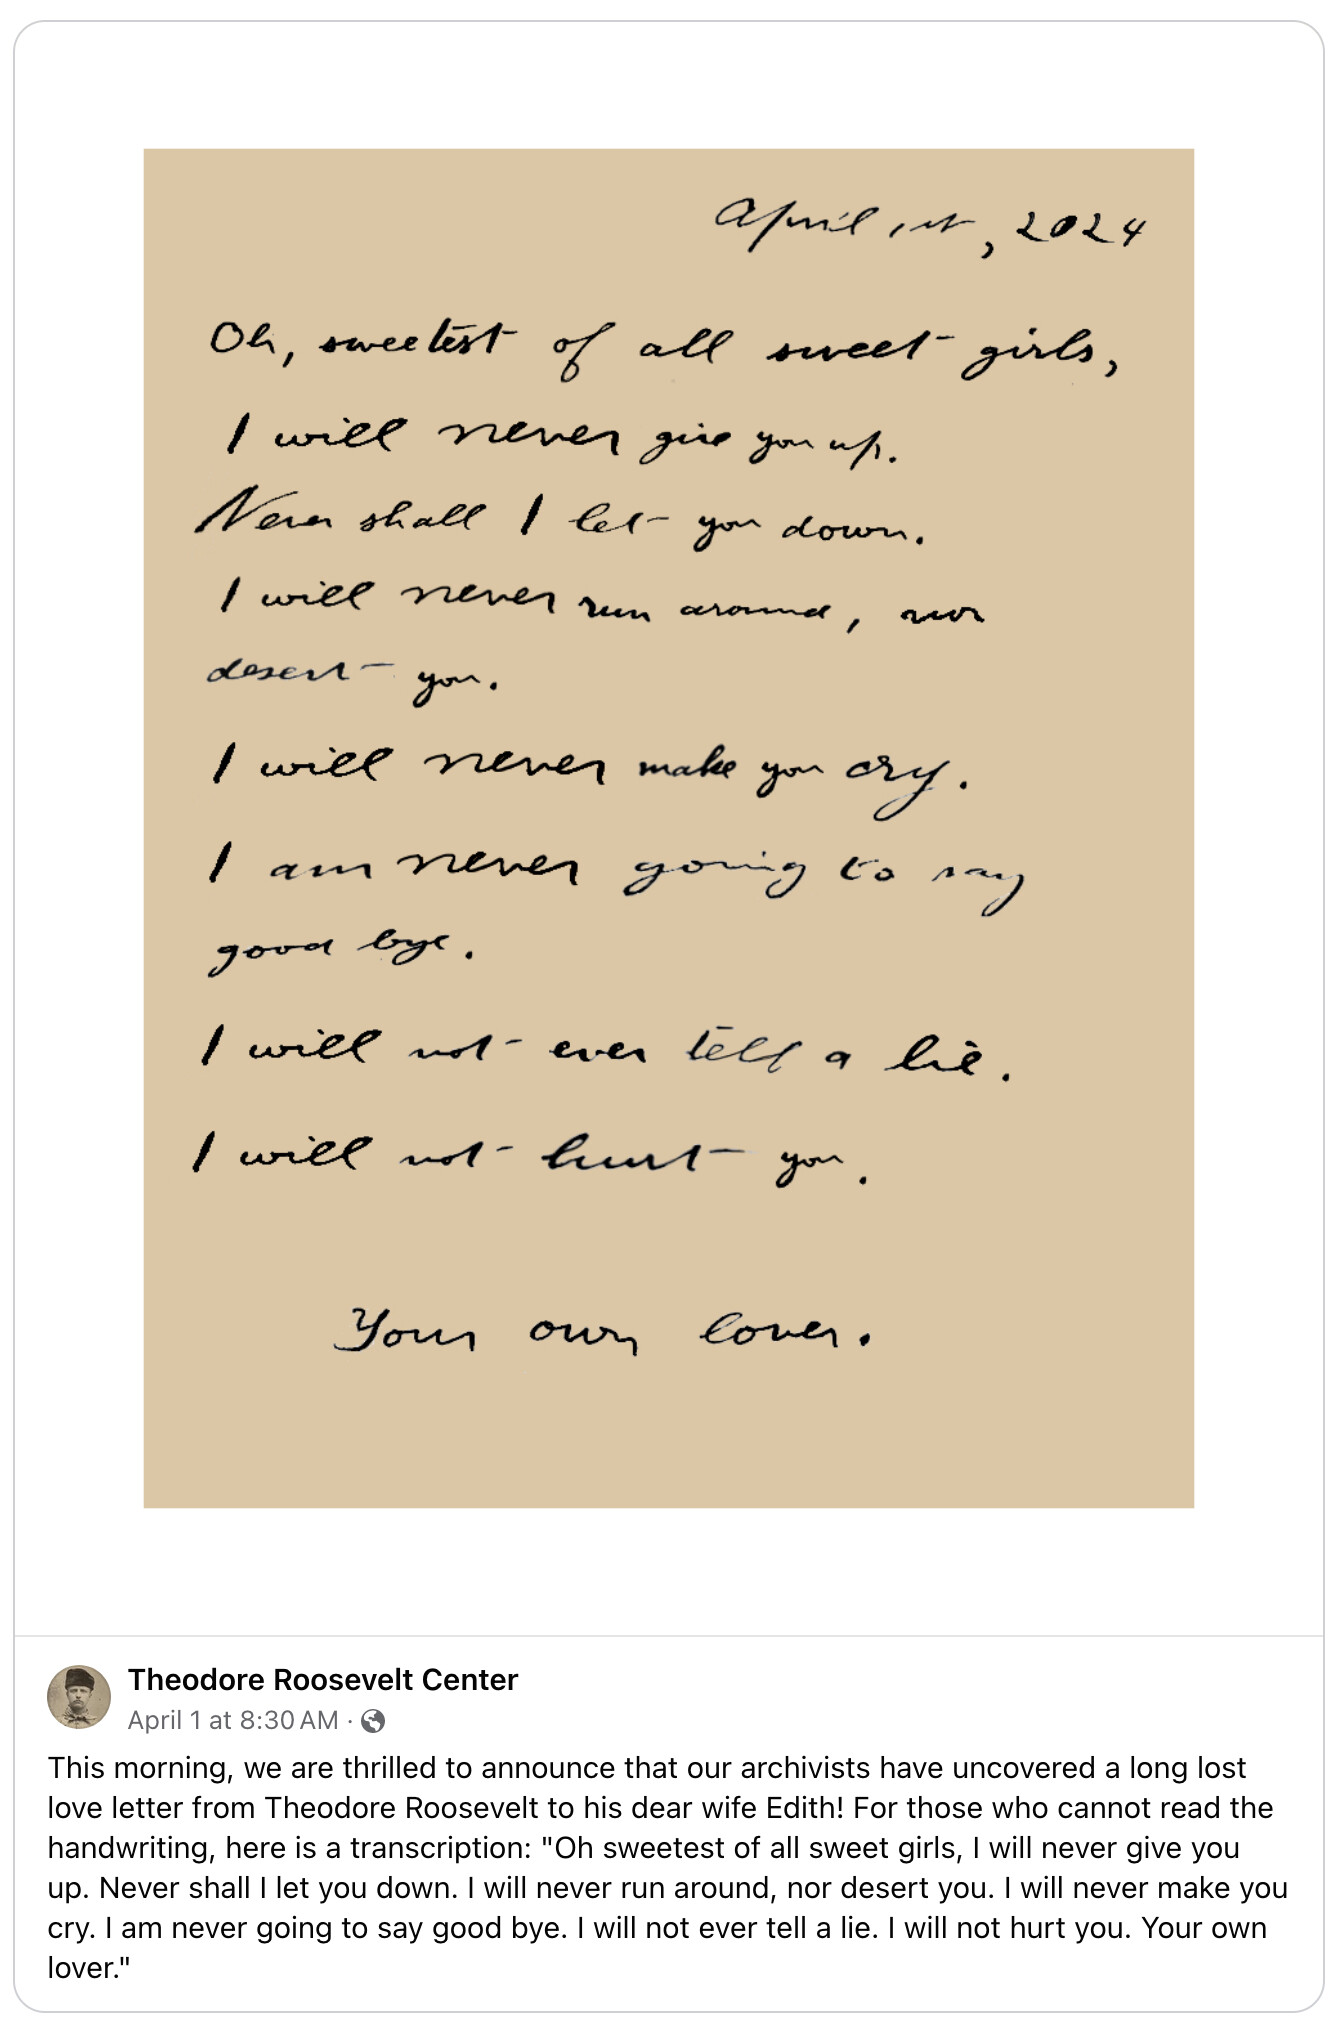 April 1st, 2024
Oh, sweetest of all sweet girls,
I will never give you up.
Never shall I let you down.
I will never run around, nor
desert you.
I will never make you cry.
I am never going to say
good bye.
I will not ever tell a lie.
I will not hurt you.
Your own lover.
Theodore Roosevelt Center
April 1 at 8:30 AM ·
This morning, we are thrilled to announce that our archivists have uncovered a long lost
love letter from Theodore Roosevelt to his dear wife Edith! For those who cannot read the
handwriting, here is a transcription: "Oh sweetest of all sweet girls, I will never give you
up. Never shall I let you down. I will never run around, nor desert you. I will never make you
cry. I am never going to say good bye. I will not ever tell a lie. I will not hurt you. Your own
lover."